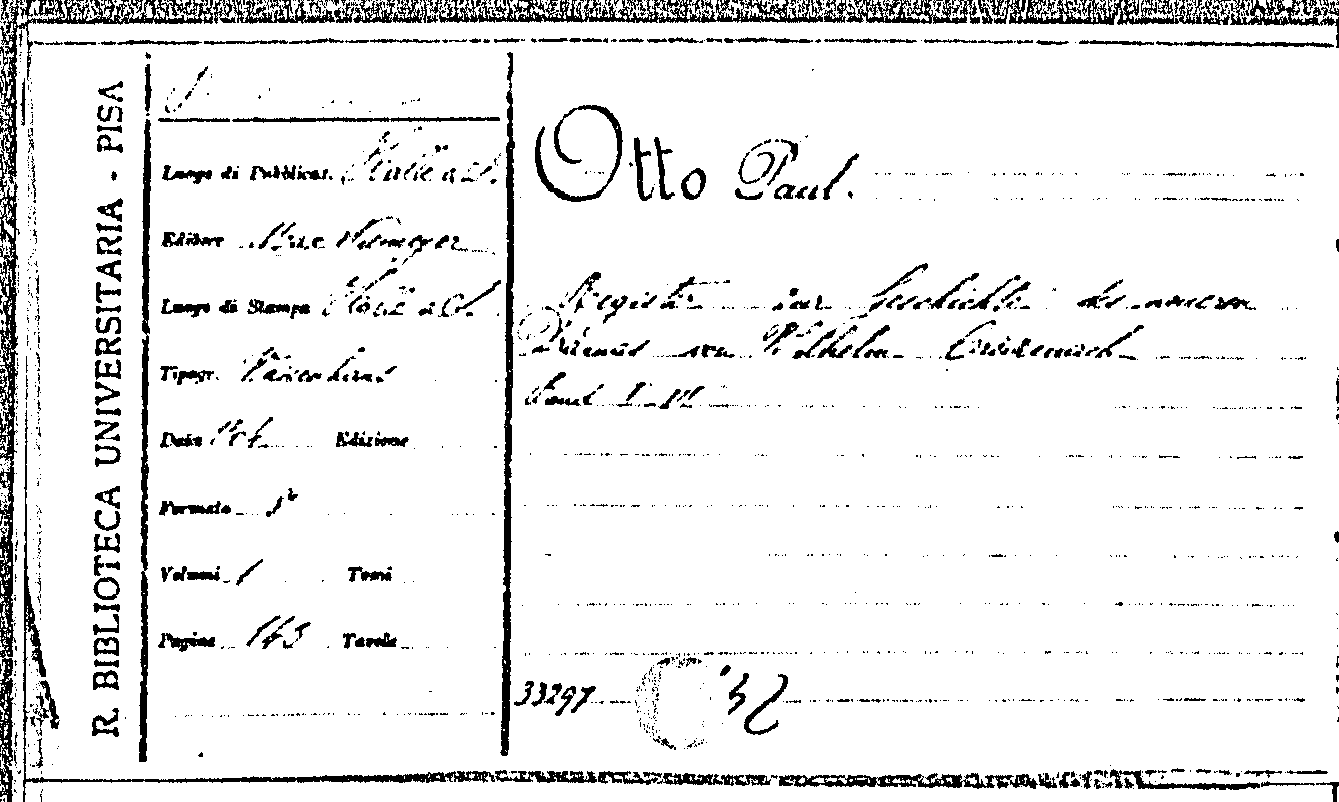 R. BIBLIOTECA UNIVERSITARIA - PISA
Luogo di Pubblicaz. Halle a S.
Editore Max Niemeyer
Luogo di Stampa Halle a S.
Tipogr. Waisenhaus
Data
Edizione
Formato 8°
Volumi 1 Tomi
Pagine 143 Tavole
Otto Paul.
Register zur Geschichte des neueren
Dramas von Wilhelm Creizenach
Band I-III
33297